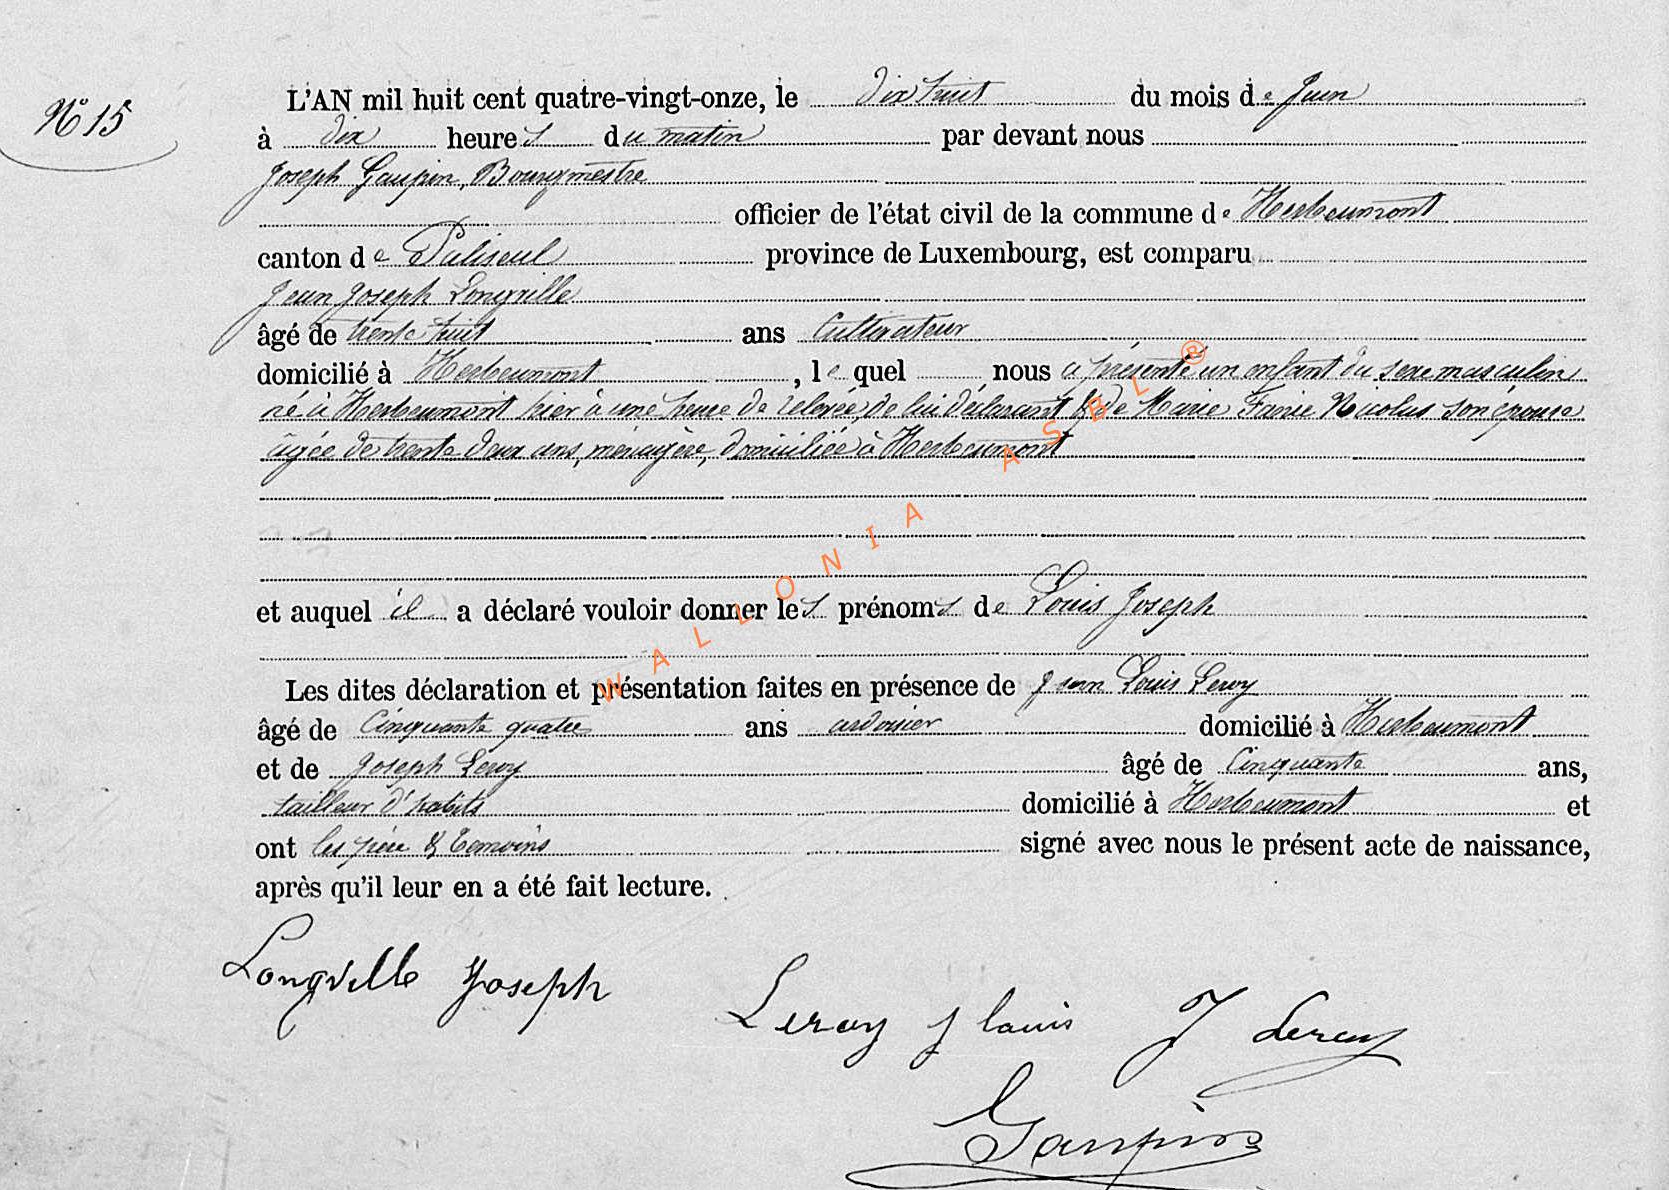 N° 15
L'AN mil huit cent quatre-vingt-onze, le dix huit du mois de Juin
à dix heures du matin par devant nous
Joseph Gaupin, Bourgmestre
officier de l'état civil de la commune de Herbeumont
canton de Paliseul province de Luxembourg, est comparu
Jean Joseph Longville
âgé de trente huit ans Cultivateur
domicilié à Herbeumont, lequel nous a présenté un enfant du sexe masculin
né à Herbeumont hier à une heure de relevée, de lui déclarant & de Marie Fanie Nicolas son épouse
âgée de trente deux ans, ménagère, domiciliée à Herbeumont
et auquel il a déclaré vouloir donner les prénoms de Louis Joseph
Les dites déclaration et présentation faites en présence de Jean Louis Leroy
âgé de Cinquante quatre ans ardoisier domicilié à Herbeumont
et de Joseph Leroy âgé de Cinquante ans,
tailleur d'habits domicilié à Herbeumont et
ont les père & témoins signé avec nous le présent acte de naissance,
après qu'il leur en a été fait lecture.
Longville Joseph
Leroy J louis J Leroy
Gaupin
WALLONIA ASBL ®